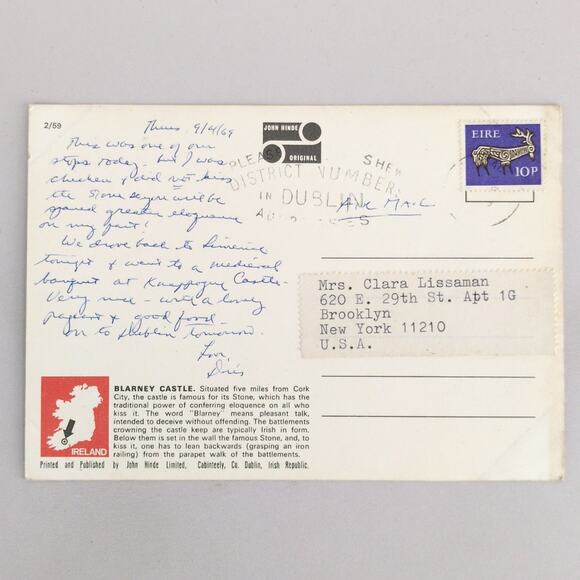 2/59
Thurs 9/4/69
This was one of our
stops today - but I was
chicken & did not kiss
the stone so you will be
spared greater eloquence
on my part!
We drove back to Limerick
tonight & went to a medieval
banquet at Knappogue Castle.
Very nice - with a lovely
pageant & good food -
on to Dublin tomorrow.
Love,
Doris
JOHN HINDE
ORIGINAL
PLEASE SHEW
DISTRICT NUMBERS
IN DUBLIN
ADDRESSES
Air Mail
EIRE
10P
Mrs. Clara Lissaman
620 E. 29th St. Apt 1G
Brooklyn
New York 11210
U.S.A.
IRELAND
BLARNEY CASTLE. Situated five miles from Cork
City, the castle is famous for its Stone, which has the
traditional power of conferring eloquence on all who
kiss it. The word "Blarney" means pleasant talk,
intended to deceive without offending. The battlements
crowning the castle keep are typically Irish in form.
Below them is set in the wall the famous Stone, and, to
kiss it, one has to lean backwards (grasping an iron
railing) from the parapet walk of the battlements.
Printed and Published by John Hinde Limited, Cabinteely, Co. Dublin, Irish Republic.